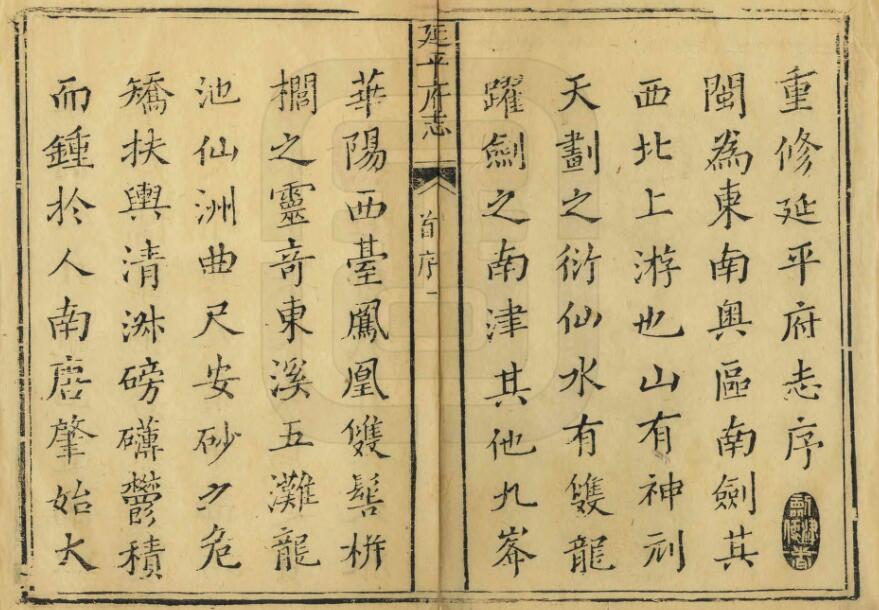 重修延平府志序
閩為東南奧區南劍其
西北上游也山有神刓
天劃之衍仙水有雙龍
躍劍之南津其他九峯
延平府志 首序 一
華陽西臺鳳凰雙髻栟
櫚之靈竒東溪五灘龍
池仙洲曲尺安砂之危
矯扶輿清淑磅礴鬱積
而鍾於人南唐肇始大